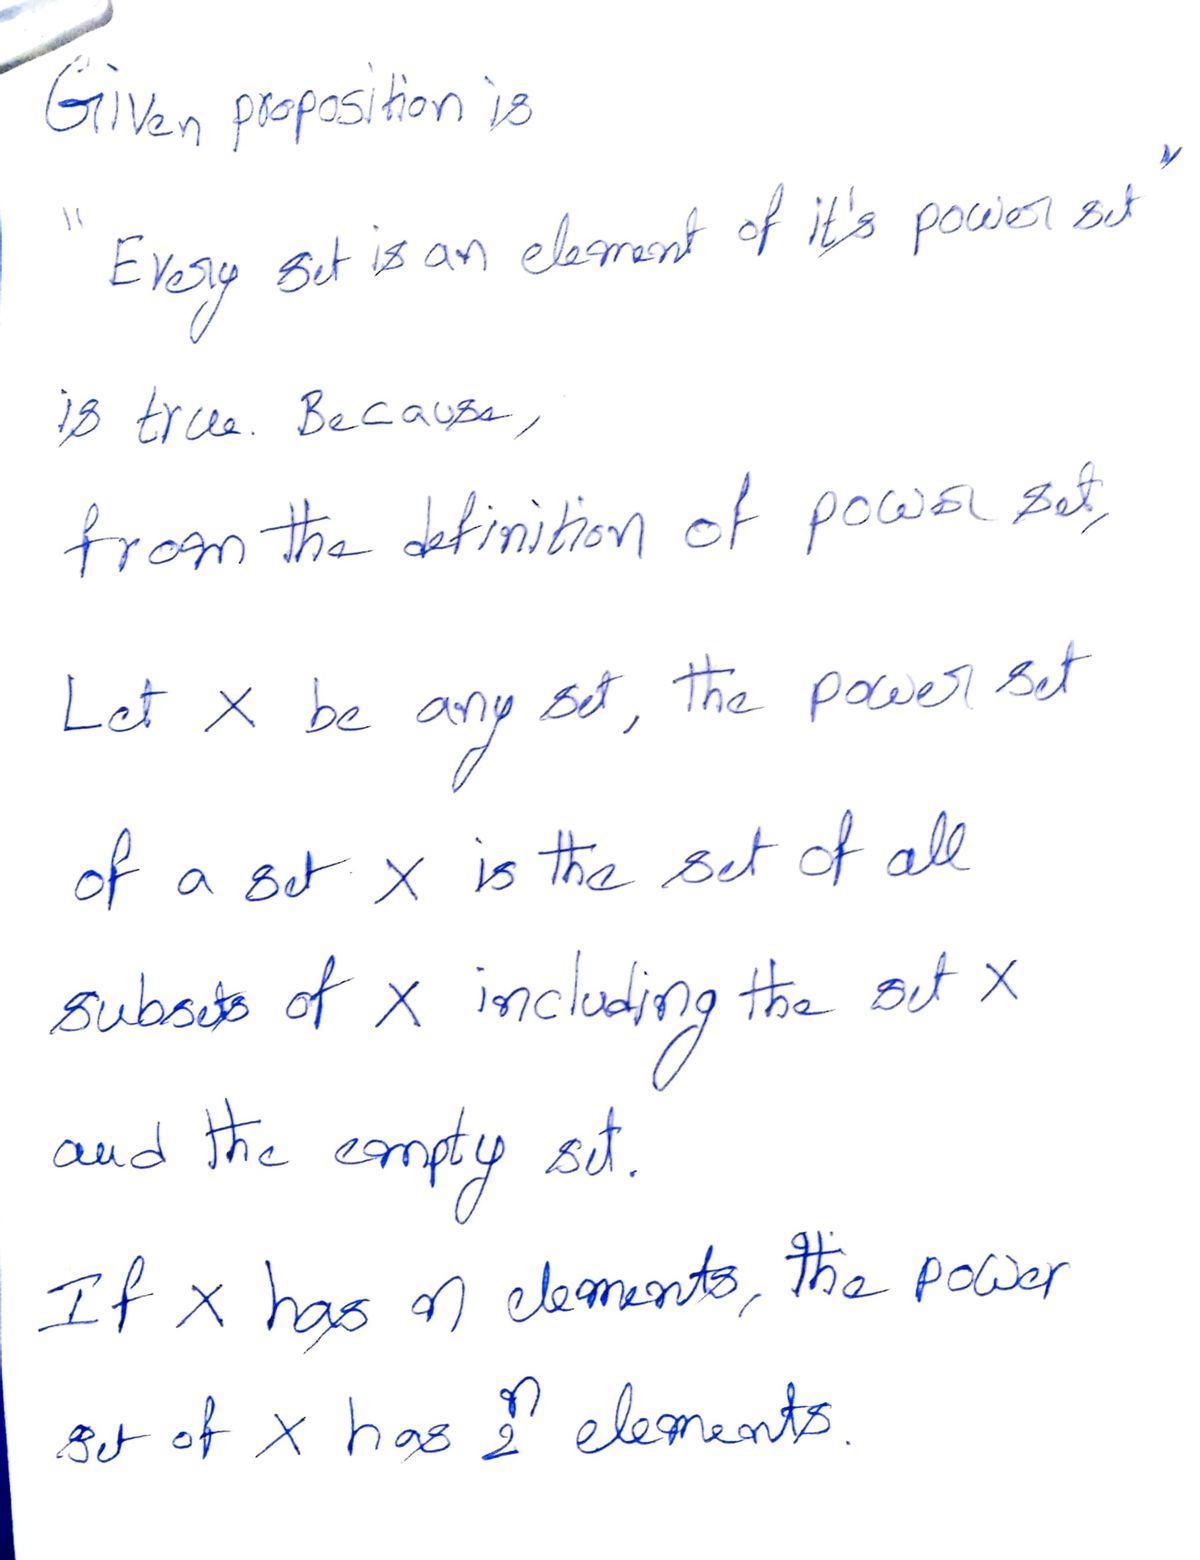 Given proposition is
"Every set is an element of it's power set"
is true. Because,
from the definition of power set,
Let X be any set, the power set
of a set X is the set of all
subsets of X including the set X
and the empty set.
If X has n elements, the power
set of X has 2ⁿ elements.